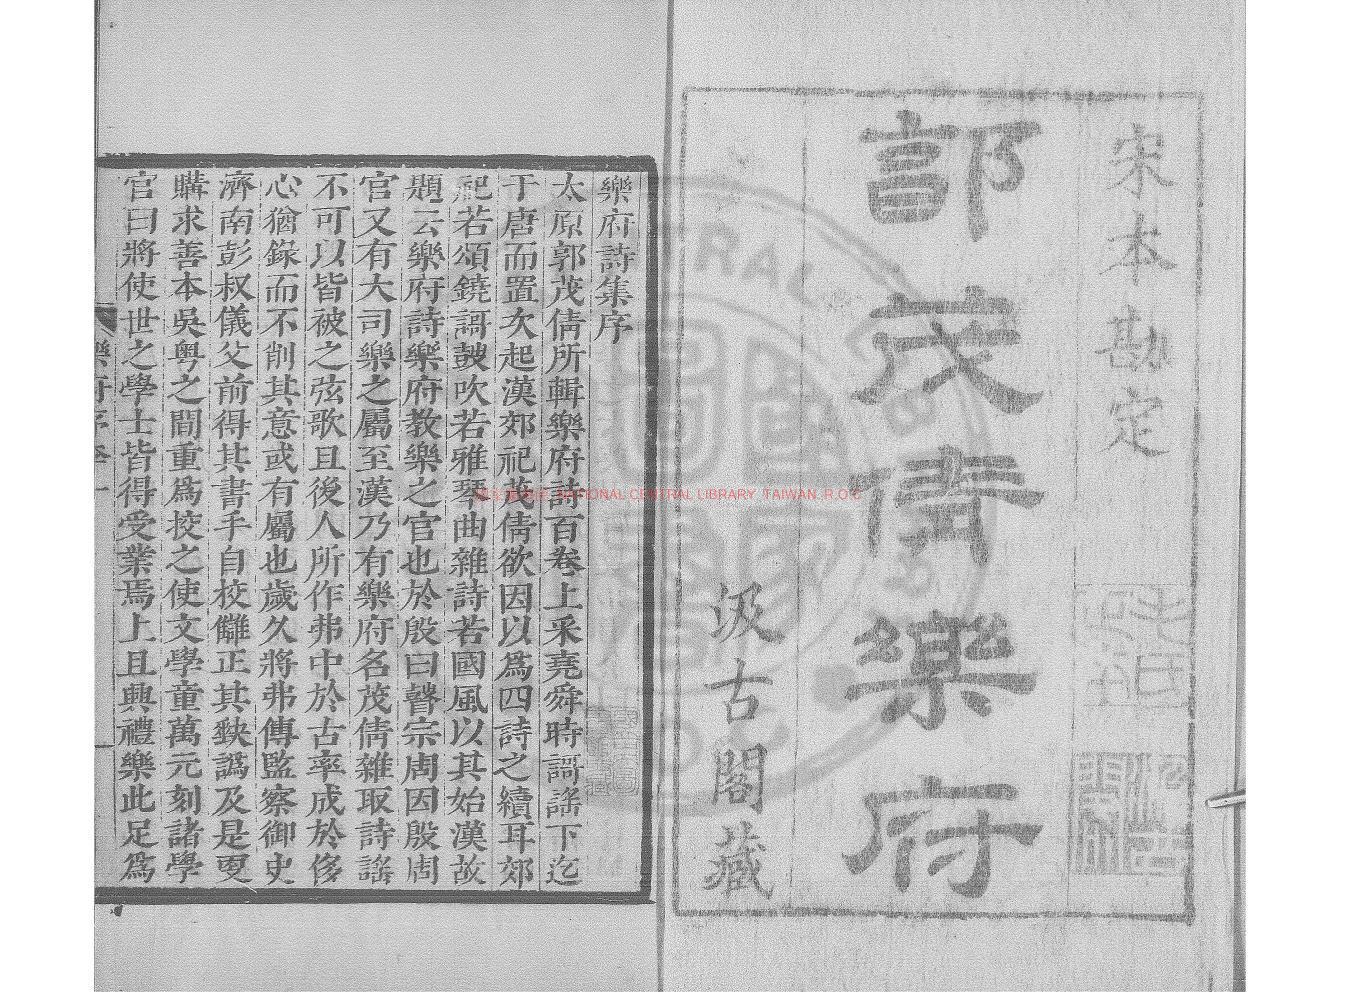 宋本勘定
郭茂倩樂府
汲古閣藏
樂府詩集序
太原郭茂倩所輯樂府詩百卷上采堯舜時謌謠下迄
于唐而置次起漢郊祀茂倩欲因以爲四詩之續耳郊
祀若頌鐃謌鼓吹若雅琴曲雜詩若國風以其始漢故
題云樂府詩樂府教樂之官也於殷曰瞽宗周因殷周
官又有大司樂之屬至漢乃有樂府名茂倩雜取詩謠
不可以皆被之弦歌且後人所作弗中於古率成於侈
心猶錄而不削其意或有屬也歲久將弗傳監察御史
濟南彭叔儀父前得其書手自挍讎正其缺譌及是更
購求善本吳粤之間重爲挍之使文學童萬元刻諸學
官曰將使世之學士皆得受業焉上且興禮樂此足爲
樂府序
NATIONAL CENTRAL LIBRARY TAIWAN R.O.C